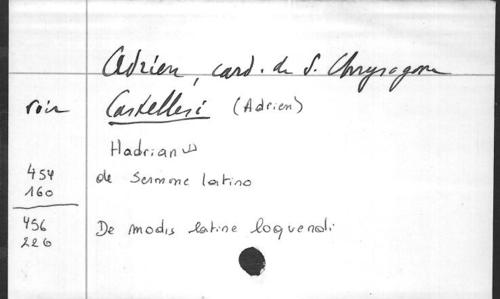 Adrien, card. de S. Chrysogone
voir Castellesi (Adrien)
Hadrianus
454 de Sermone latino
160
456 De modis latine loquendi
226